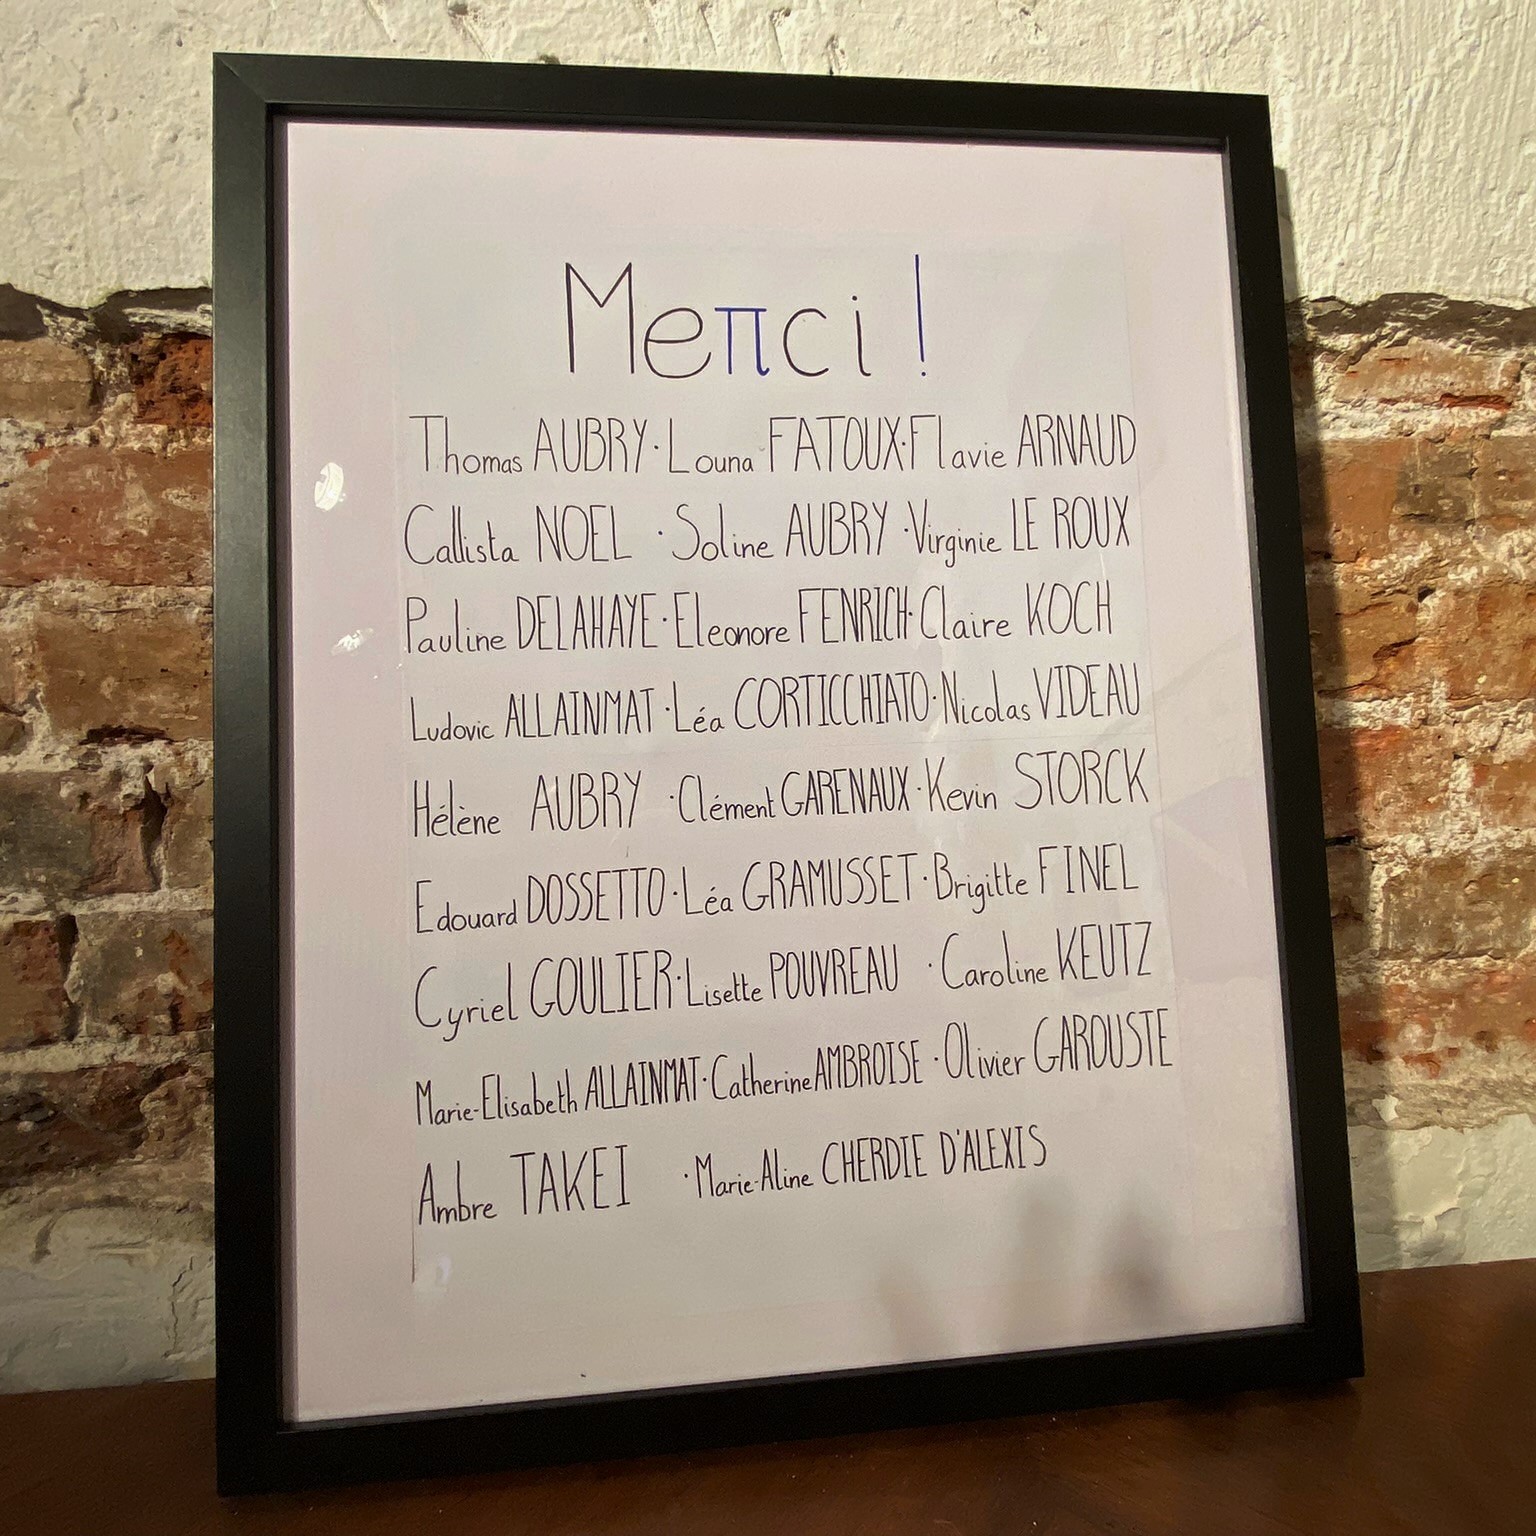 Meπci !
Thomas AUBRY · Louna FATOUX · Flavie ARNAUD
Callista NOEL · Soline AUBRY · Virginie LE ROUX
Pauline DELAHAYE · Eleonore FENRICH · Claire KOCH
Ludovic ALLAINMAT · Léa CORTICCHIATO · Nicolas VIDEAU
Hélène AUBRY · Clément GARENAUX · Kevin STORCK
Edouard DOSSETTO · Léa GRAMUSSET · Brigitte FINEL
Cyriel GOULIER · Lisette POUVREAU · Caroline KEUTZ
Marie-Elisabeth ALLAINMAT · Catherine AMBROISE · Olivier GAROUSTE
Ambre TAKEI · Marie-Aline CHERDIE D'ALEXIS